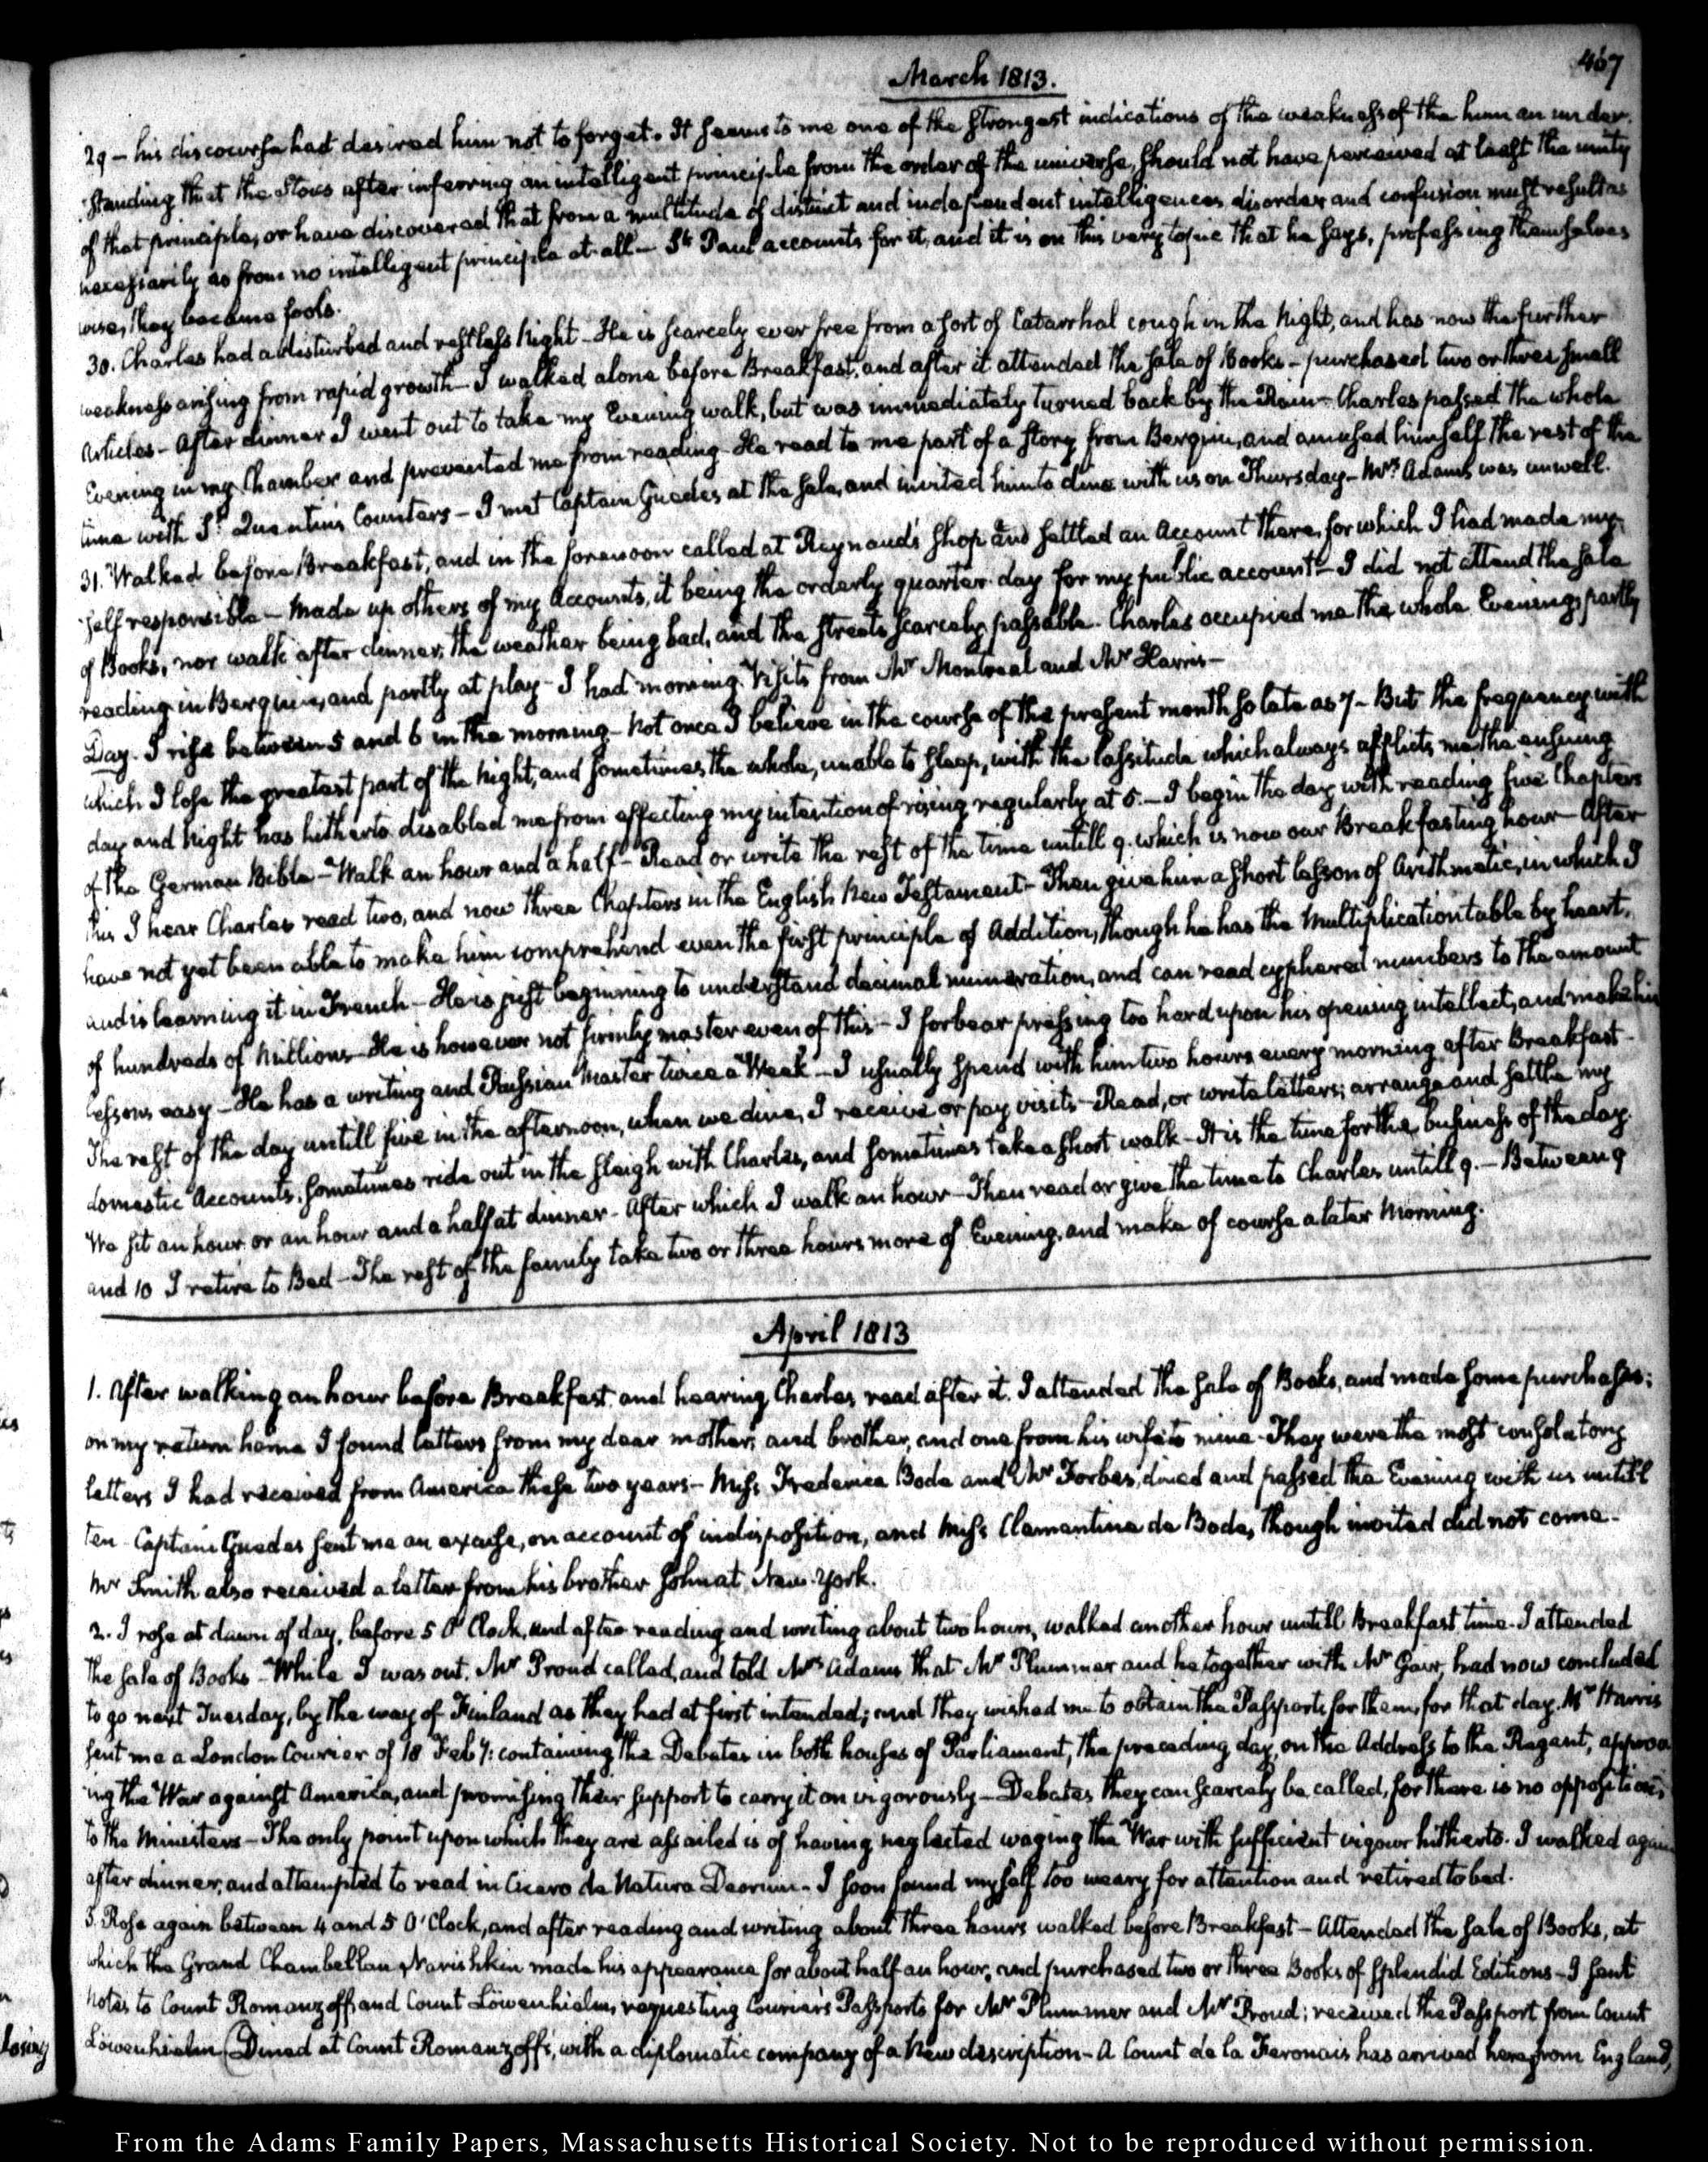 467
March 1813.
29 - his discourse had desired him not to forget. It seems to me one of the strongest indications of the weakness of the human under-
standing that the Stoics after inferring an intelligent principle from the order of the universe, should not have perceived at least the unity
of that principle, or have discovered that from a multitude of distinct and independent intelligences disorder and confusion must result as
necessarily as from no intelligent principle at all - St. Paul accounts for it, and it is on this very topic that he says, professing themselves
wise, they became fools.
30. Charles had a disturbed and restless Night - He is scarcely ever free from a sort of Catarrhal cough in the Night, and has now the further
weakness arising from rapid growth - I walked alone before Breakfast, and after it attended the sale of Books - purchased two or three small
Articles - After dinner I went out to take my Evening walk, but was immediately turned back by the Rain - Charles passed the whole
Evening in my Chamber and prevented me from reading - He read to me part of a story from Berquin, and amused himself the rest of the
time with St. Quentin's Counters - I met Captain Guedes at the sale, and invited him to dine with us on Thursday - Mrs. Adams was unwell.
31. Walked before Breakfast, and in the forenoon called at Reynaud's shop and settled an Account there, for which I had made my-
self responsible - Made up others of my Accounts, it being the orderly quarter-day for my public account - I did not attend the sale
of Books, nor walk after dinner, the weather being bad, and the streets scarcely passable. Charles occupied me the whole Evening, partly
reading in Berquin, and partly at play - I had morning Visits from Mr. Montreal and Mr. Harris -
Day. I rise between 5 and 6 in the morning - Not once I believe in the course of the present month so late as 7 - But the frequency with
which I lose the greatest part of the Night, and sometimes the whole, unable to sleep, with the lassitude which always afflicts me the ensuing
day and Night has hitherto disabled me from effecting my intention of rising regularly at 5. - I begin the day with reading five Chapters
of the German Bible - Walk an hour and a half - Read or write the rest of the time untill 9. which is now our Breakfasting hour - After
this I hear Charles read two, and now three Chapters in the English New Testament - Then give him a short lesson of Arithmetic, in which I
have not yet been able to make him comprehend even the first principle of Addition, though he has the Multiplication table by heart,
and is learning it in French - He is just beginning to understand decimal numeration, and can read cyphered numbers to the amount
of hundreds of Millions - He is however not firmly master even of this - I forbear pressing too hard upon his opening intellect, and make his
lessons easy - He has a writing and Russian Master twice a Week - I usually spend with him two hours every morning after Breakfast -
The rest of the day untill five in the afternoon, when we dine, I receive or pay visits - Read, or write letters; arrange and settle my
domestic Accounts. Sometimes ride out in the sleigh with Charles, and sometimes take a short walk - It is the time for the business of the day.
We sit an hour or an hour and a half at dinner - After which I walk an hour - Then read or give the time to Charles untill 9. - Between 9
and 10 I retire to Bed - The rest of the family take two or three hours more of Evening, and make of course a later Morning.
April 1813
1. After walking an hour before Breakfast and hearing Charles read after it. I attended the sale of Books, and made some purchases;
on my return home I found letters from my dear mother, and brother, and one from his wife to mine - They were the most consolatory
letters I had received from America these two years - Miss Frederica Bode and Mr. Forbes, dined and passed the Evening with us untill
ten - Captain Guedes sent me an excuse, on account of indisposition, and Miss Clementina de Bode, though invited did not come -
Mr. Smith also received a letter from his brother John at New-York.
2. I rose at dawn of day, before 5 O'Clock, and after reading and writing about two hours, walked another hour untill Breakfast time - I attended
the sale of Books - While I was out, Mr. Proud called, and told Mrs. Adams that Mr. Plummer and he together with Mr. Gavr, had now concluded
to go next Tuesday, by the way of Finland as they had at first intended; and they wished me to obtain the Passports for them, for that day. Mr. Harris
sent me a London Courier of 18 Feby: containing the Debates in both houses of Parliament, the preceding day, on the Address to the Regent, approv-
ing the War against America, and promising their support to carry it on vigorously - Debates they can scarcely be called, for there is no opposition,
to the Ministers - The only point upon which they are assailed is of having neglected waging the War with sufficient vigour hitherto. I walked again
after dinner, and attempted to read in Cicero de Natura Deorum - I soon found myself too weary for attention and retired to bed.
3. Rose again between 4 and 5 O'Clock, and after reading and writing about three hours walked before Breakfast - Attended the sale of Books, at
which the Grand Chambellan Narishkin made his appearance for about half an hour, and purchased two or three Books of splendid Editions - I sent
Notes to Count Romanzoff, and Count Löwenhielm, requesting Courier's Passports for Mr. Plummer and Mr. Proud; received the Passport from Count
Löwenhielm (Dined at Count Romanzoff's, with a diplomatic company of a new description - A Count de la Feronais has arrived here from England,
losing
From the Adams Family Papers, Massachusetts Historical Society. Not to be reproduced without permission.